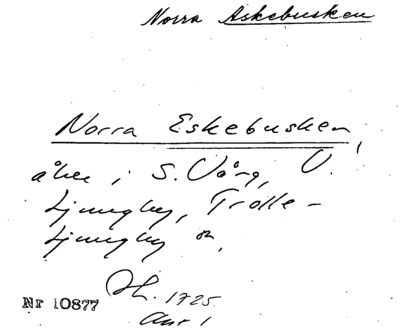 Norra Askebusken
Norra Eskebusken,
åker i S. Vång, V.
Ljungby, Trolle-
Ljungby sn,
Jb. 1725.
Nr 10877
Anr 1